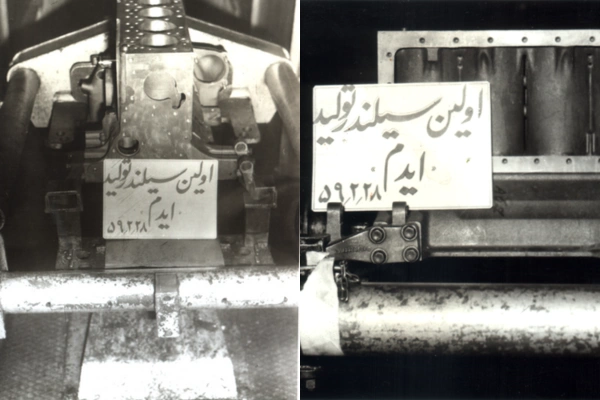 اولین سیلندر تولید
ایدم
۵۹٫۲٫۲۸
اولین سیلندر تولید
ایدم
۵۹٫۲٫۲۸